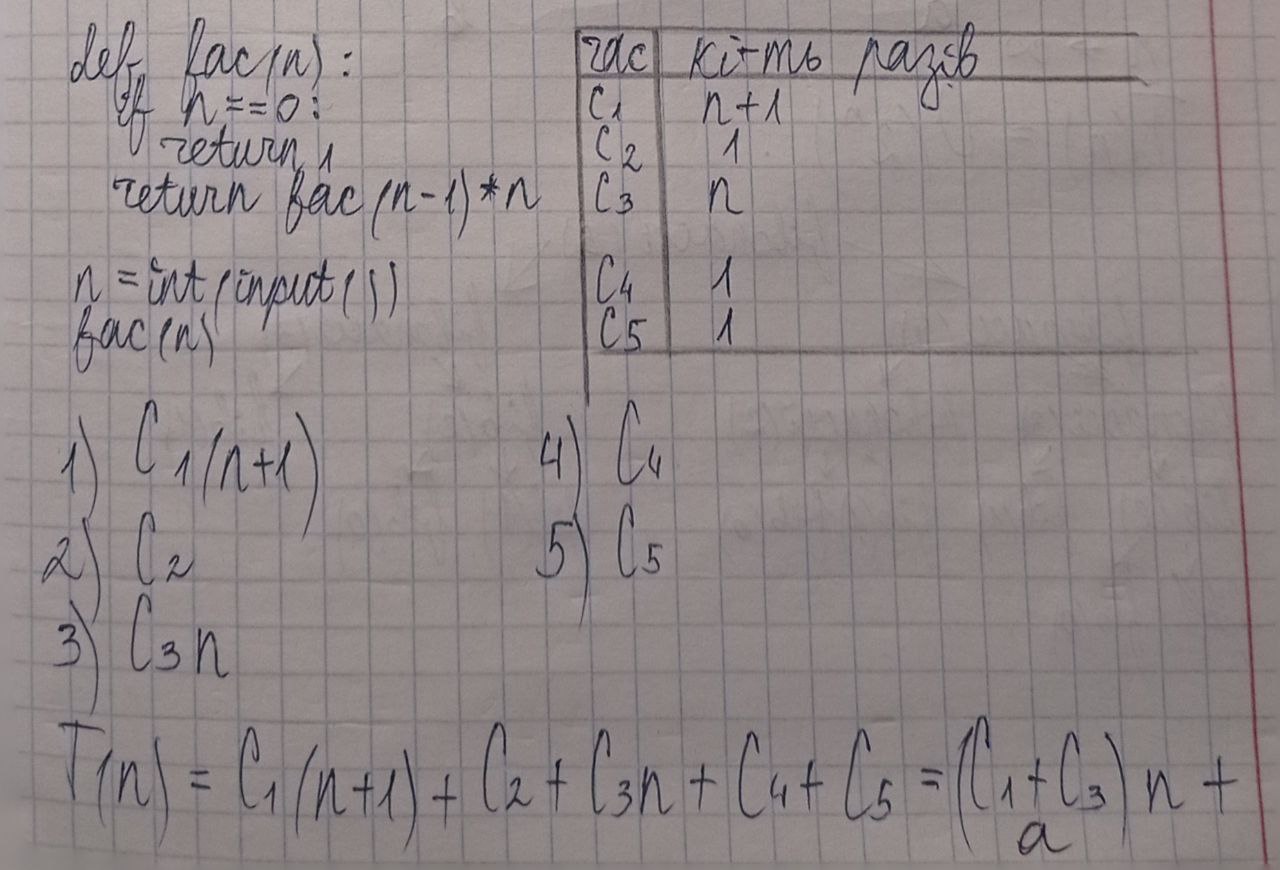 def fac(n):
if n==0:
return 1
return fac(n-1)*n
n=int(input())
fac(n)
час кі-ть разів
C1 n+1
C2 1
C3 n
C4 1
C5 1
1) C1(n+1)
2) C2
3) C3n
4) C4
5) C5
T(n) = C1(n+1) + C2 + C3n + C4 + C5 = (C1+C3)n +
a